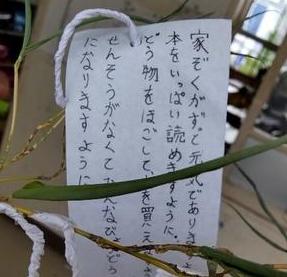 家ぞくがずっと元気でありま
本をいっぱい読めますように。
どう物をほごして を買え
せんそうがなくて んなびょうどう
になりますように